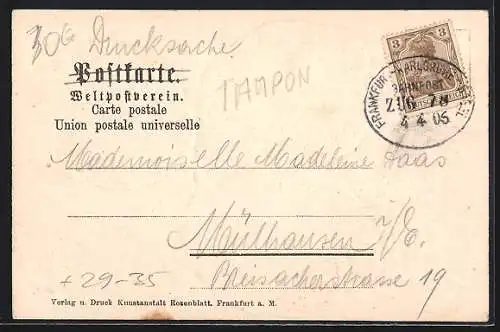 306 Drucksache
Postkarte.
Weltpostverein.
Carte postale
Union postale universelle
TAMPON
3
FRANKFUR. KARLSRUHE
BAHNPOST
ZUG 78
4 4 05
Mademoiselle Madeleine Haas
Mülhausen i/E.
Breisacherstrasse 19
+29-35
Verlag u. Druck Kunstanstalt Rosenblatt. Frankfurt a. M.